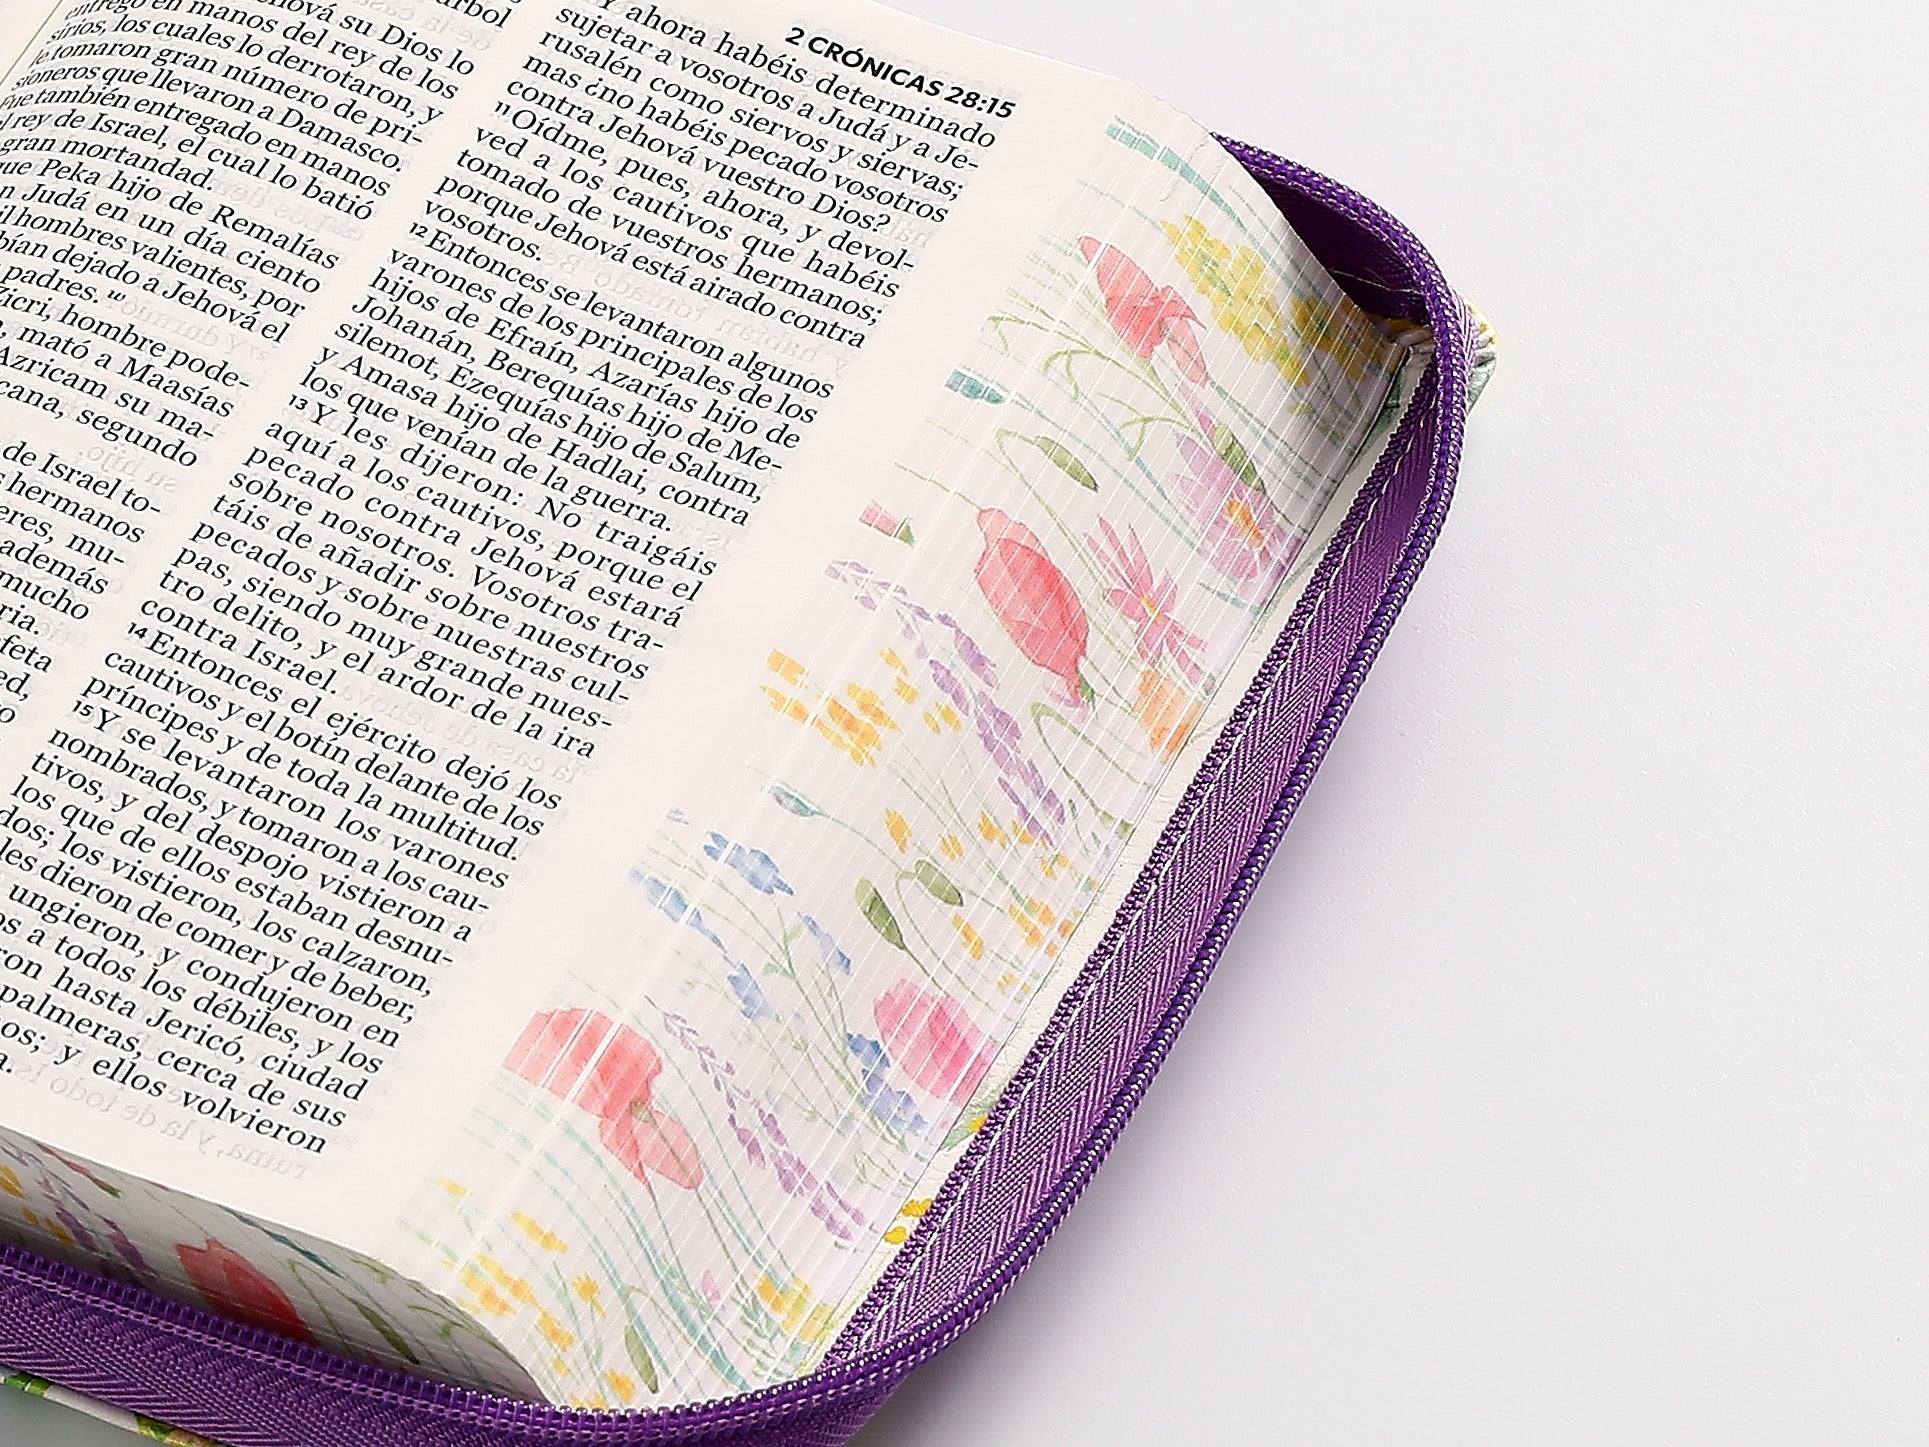 2 CRÓNICAS 28:15
árbol
Jehová su Dios lo
entregó en manos del rey de los
sirios, los cuales lo derrotaron, y
le tomaron gran número de pri-
sioneros que llevaron a Damasco.
Fue también entregado en manos
el rey de Israel, el cual lo batió
gran mortandad.
que Peka hijo de Remalías
n Judá en un día ciento
il hombres valientes, por
bían dejado a Jehová el
padres. w
Zicri, hombre pode-
, mató a Maasías
Azricam su ma-
cana, segundo
de Israel to-
s hermanos
eres, mu-
además
mucho
ria.
feta
ed,
Y ahora habéis determinado
sujetar a vosotros a Judá y a Je-
rusalén como siervos y siervas;
mas ¿no habéis pecado vosotros
contra Jehová vuestro Dios?
11 Oídme, pues, ahora, y devol-
ved a los cautivos que habéis
tomado de vuestros hermanos;
porque Jehová está airado contra
vosotros.
12 Entonces se levantaron algunos
varones de los principales de los
hijos de Efraín, Azarías hijo de
Johanán, Berequías hijo de Me-
silemot, Ezequías hijo de Salum,
y Amasa hijo de Hadlai, contra
los que venían de la guerra.
13 Y les dijeron: No traigáis
aquí a los cautivos, porque el
pecado contra Jehová estará
sobre nosotros. Vosotros tra-
táis de añadir sobre nuestros
pecados y sobre nuestras cul-
pas, siendo muy grande nues-
tro delito, y el ardor de la ira
contra Israel.
14 Entonces el ejército dejó los
cautivos y el botín delante de los
príncipes y de toda la multitud.
15 Y se levantaron los varones
nombrados, y tomaron a los cau-
tivos, y del despojo vistieron a
los que de ellos estaban desnu-
dos; los vistieron, los calzaron,
les dieron de comer y de beber,
ungieron, y condujeron en
os a todos los débiles, y los
ron hasta Jericó, ciudad
palmeras, cerca de sus
os; y ellos volvieron
a.